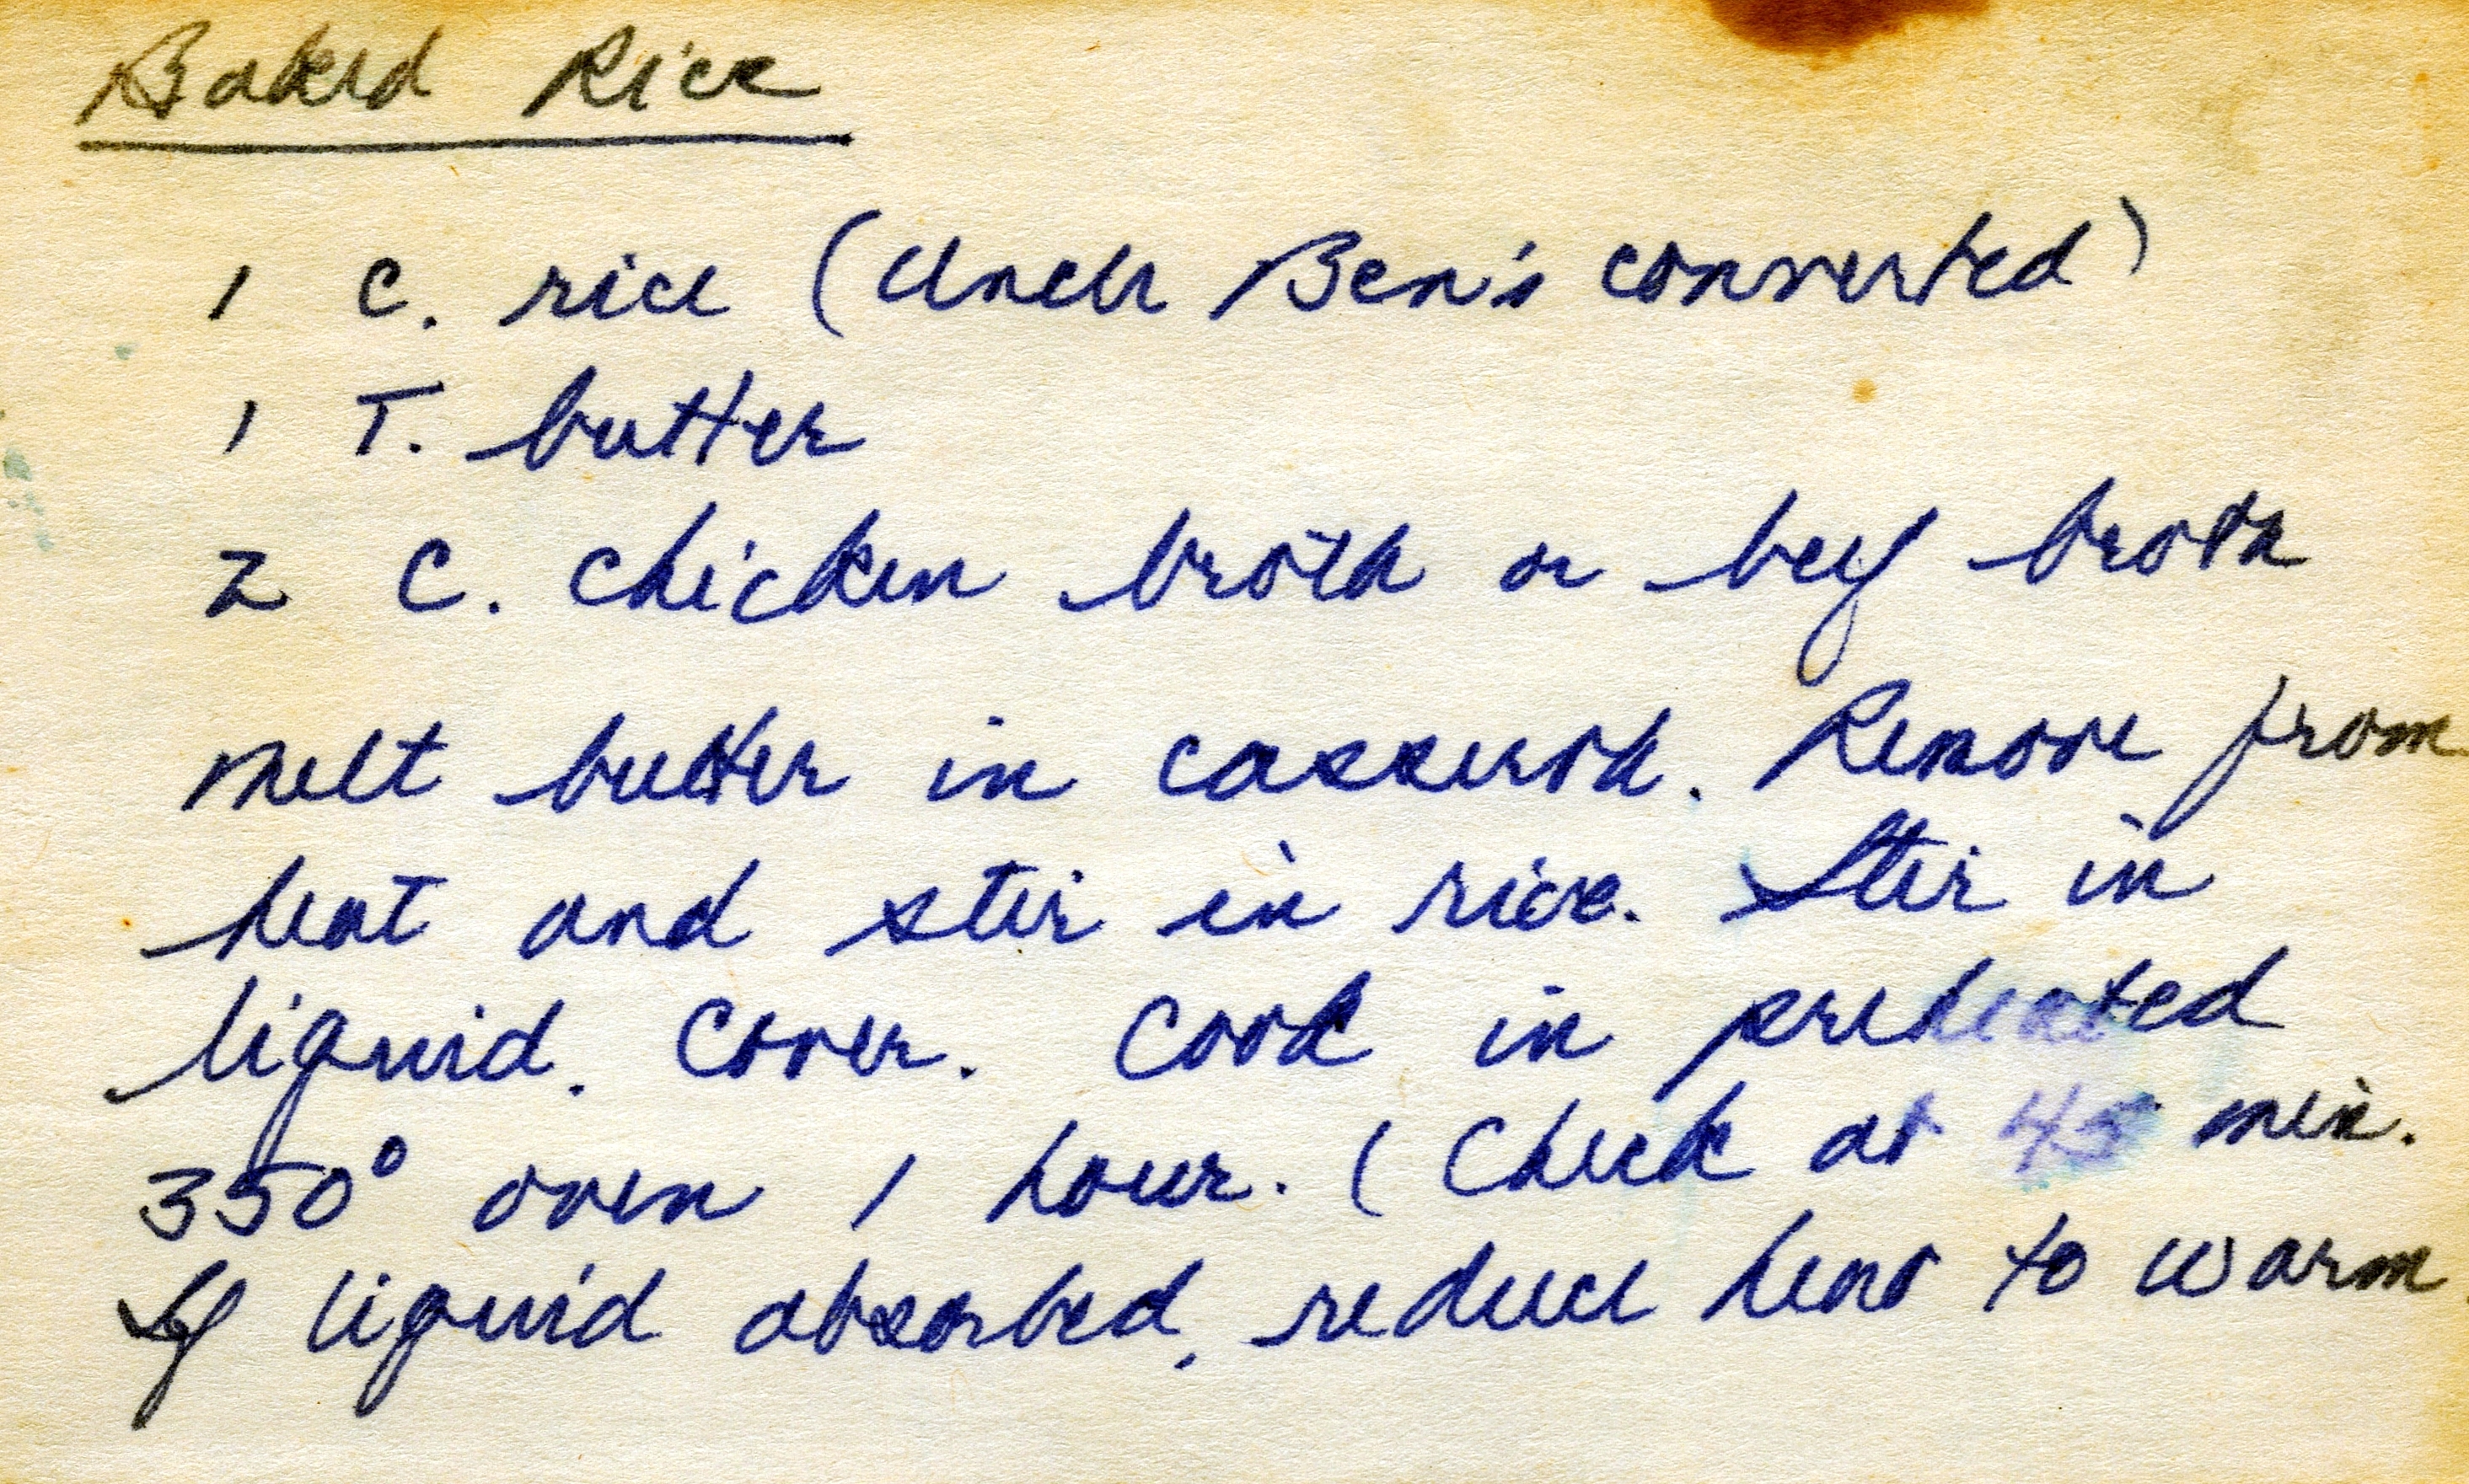 Baked Rice
1 c. rice (Uncle Ben's converted)
1 T. butter
2 c. chicken broth or beef broth
Melt butter in casserole. Remove from
heat and stir in rice. Stir in
liquid. Cover. Cook in preheated
350° oven 1 hour. (Check at 45 min.
If liquid absorbed, reduce heat to warm.